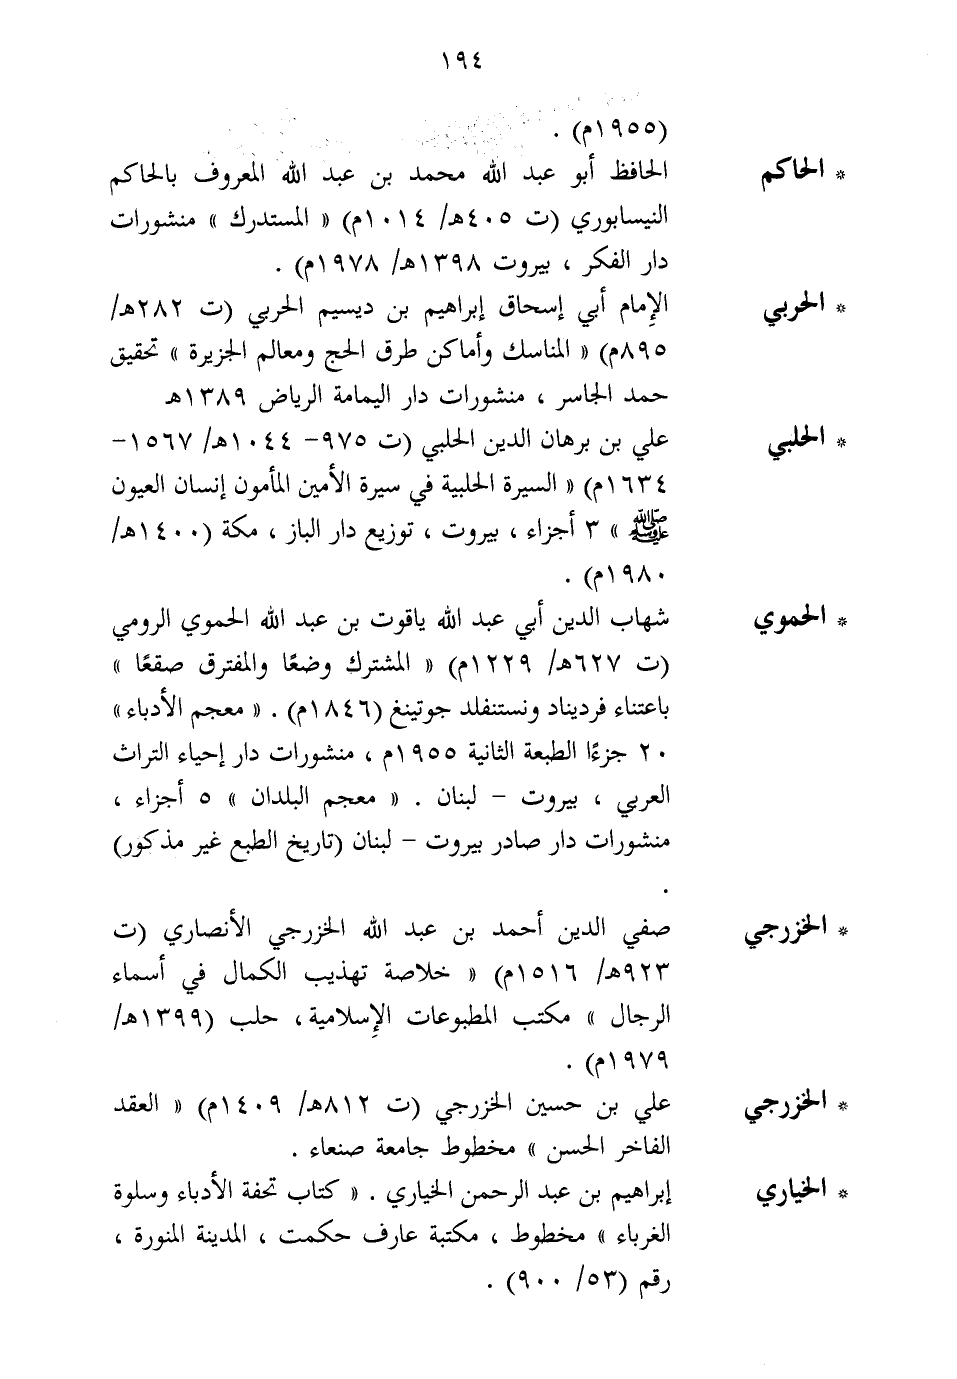 ١٩٤
(١٩٥٥م) .
* الحاكم الحافظ أبو عبد الله محمد بن عبد الله المعروف بالحاكم
النيسابوري (ت ٤٠٥هـ/ ١٠١٤م) « المستدرك » منشورات
دار الفكر ، بيروت ١٣٩٨هـ/ ١٩٧٨م) .
* الحربي الإمام أبي إسحاق إبراهيم بن ديسيم الحربي (ت ٢٨٢هـ/
٨٩٥م) « المناسك وأماكن طرق الحج ومعالم الجزيرة » تحقيق
حمد الجاسر ، منشورات دار اليمامة الرياض ١٣٨٩هـ
* الحلبي علي بن برهان الدين الحلبي (ت ٩٧٥- ١٠٤٤هـ/ ١٥٦٧-
١٦٣٤م) « السيرة الحلبية في سيرة الأمين المأمون إنسان العيون
ﷺ » ٣ أجزاء ، بيروت ، توزيع دار الباز ، مكة (١٤٠٠هـ/
١٩٨٠م) .
* الحموي شهاب الدين أبي عبد الله ياقوت بن عبد الله الحموي الرومي
(ت ٦٢٧هـ/ ١٢٢٩م) « المشترك وضعًا والمفترق صقعًا »
باعتناء فرديناد ونستنفلد جوتينغ (١٨٤٦م) . « معجم الأدباء »
٢٠ جزءًا الطبعة الثانية ١٩٥٥م ، منشورات دار إحياء التراث
العربي ، بيروت – لبنان . « معجم البلدان » ٥ أجزاء ،
منشورات دار صادر بيروت – لبنان (تاريخ الطبع غير مذكور)
.
* الخزرجي صفي الدين أحمد بن عبد الله الخزرجي الأنصاري (ت
٩٢٣هـ/ ١٥١٦م) « خلاصة تهذيب الكمال في أسماء
الرجال » مكتب المطبوعات الإسلامية، حلب (١٣٩٩هـ/
١٩٧٩م) .
* الخزرجي علي بن حسين الخزرجي (ت ٨١٢هـ/ ١٤٠٩م) « العقد
الفاخر الحسن » مخطوط جامعة صنعاء .
* الخياري إبراهيم بن عبد الرحمن الخياري . « كتاب تحفة الأدباء وسلوة
الغرباء » مخطوط ، مكتبة عارف حكمت ، المدينة المنورة ،
رقم (٥٣/ ٩٠٠) .